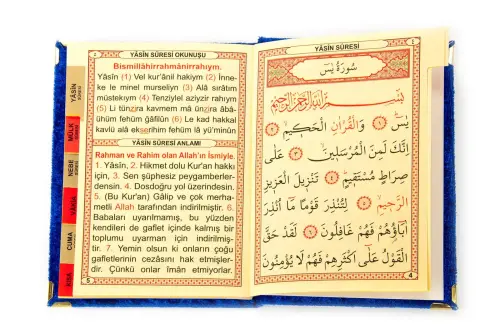 YÂSİN SÛRESİ OKUNUŞU
Bismillâhirrahmânirrahıym.
Yâsîn (1) Vel kur'ânil hakiym (2) İnne-
ke le minel murseliyn (3) Alâ sırâtım
müstekıym (4) Tenziylel aziyzir rahıym
(5) Li tünzira kavmem mâ ünzira âbâ-
ühüm fehüm ğâfilûn (6) Le kad hakkal
kavlü alâ ekserihim fehüm lâ yü'minûn
YÂSİN SÛRESİ ANLAMI
Rahman ve Rahim olan Allah'ın İsmiyle.
1. Yâsîn, 2. Hikmet dolu Kur'an hakkı
için, 3. Sen şüphesiz peygamberler-
densin. 4. Dosdoğru yol üzerindesin.
5. (Bu Kur'an) Gâlip ve çok merha-
metli Allah tarafından indirilmiştir. 6.
Babaları uyarılmamış, bu yüzden
kendileri de gaflet içinde kalmış bir
toplumu uyarman için indirilmiş-
tir. 7. Yemin olsun ki onların çoğu
gafletlerinin cezasını hak etmişler-
dir. Çünkü onlar îmân etmiyorlar.
5
YÂSİN
SÛRESİ
MÜLK
NEBE
CUMA
YÂSİN SÛRESİ
سُورَةُ يٰسٓ
بِسْمِ اللّٰهِ الرَّحْمٰنِ الرَّحِيمِ
يٰسٓ ﴿١﴾ وَالْقُرْاٰنِ الْحَكِيمِ ﴿٢﴾
اِنَّكَ لَمِنَ الْمُرْسَلِينَ ﴿٣﴾ عَلٰى
صِرَاطٍ مُسْتَقِيمٍ ﴿٤﴾ تَنْزِيلَ الْعَزِيزِ
الرَّحِيمِ ﴿٥﴾ لِتُنْذِرَ قَوْمًا مَٓا اُنْذِرَ
اٰبَٓاؤُهُمْ فَهُمْ غَافِلُونَ ﴿٦﴾ لَقَدْ حَقَّ
الْقَوْلُ عَلٰٓى اَكْثَرِهِمْ فَهُمْ لَا يُؤْمِنُونَ
4